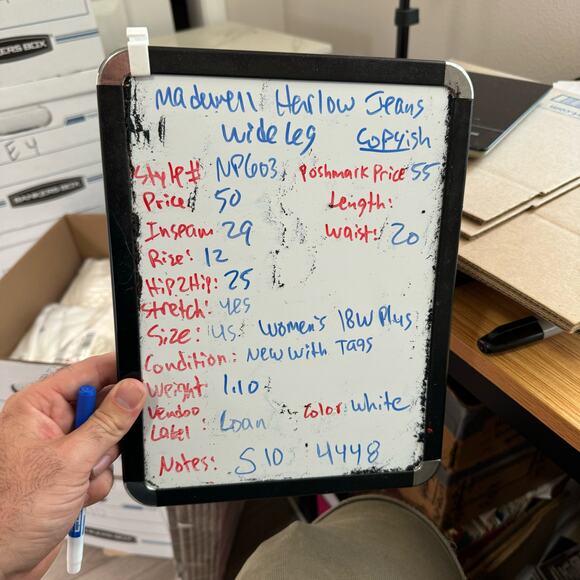 Madewell Harlow Jeans
Wide Leg Copyish
Style# NP603 Poshmark Price 55
Price 50 Length:
Inseam 29 Waist: 20
Rise: 12
Hip2Hip: 25
Stretch: yes
Size: US: Women's 18W Plus
Condition: New with Tags
Weight 1.10
Vendoo Color: White
Label: Loan
Notes: S 10 4448
BANKERS BOX
BANKERS BOX
EY